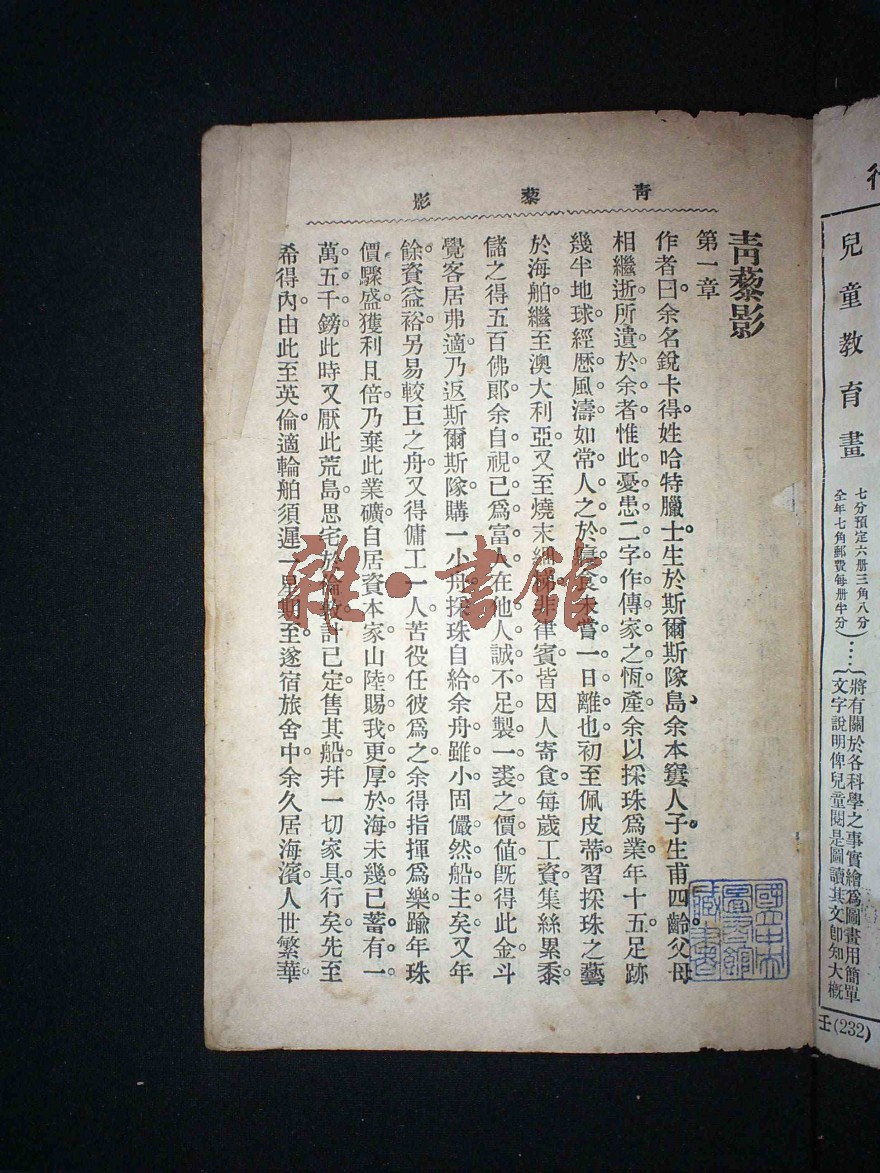 青藜影
青藜影
第一章
作者曰。余名銳卡得。姓哈特臘士。生於斯爾斯隊島。余本窶人子。生甫四齡。父母
相繼逝。所遺於余者。惟此憂患二字。作傳家之恆產。余以採珠爲業。年十五。足跡
幾半地球。經歷風濤。如常人之於寢食。未嘗一日離也。初至佩皮蒂。習採珠之藝
於海舶。繼至澳大利亞。又至燒末 非律賓。皆因人寄食。每歲工資。集絲累黍
儲之得五百佛郎。余自視已爲富人。在他人誠不足製一裘之價值。旣得此金。斗
覺客居弗適。乃返斯爾斯隊。購一小舟。採珠自給。余舟雖小。固儼然船主矣。又年
餘。資益裕。另易較巨之舟。又得傭工一人。苦役任彼爲之。余得指揮爲樂。踰年。珠
價驟盛。獲利且倍。乃棄此業礦。自居資本家。山陸賜我。更厚於海。未幾。已蓄有一
萬五千鎊。此時又厭此荒島。思宅於倫敦。計已定。售其船幷一切家具。行矣。先至
希得內。由此至英倫。適輪舶須遲一星期至。遂宿旅舍中。余久居海濱。人世繁華
雜·書館
國立中央圖書館藏書
兒童教育畫
七分預定六册三角八分
全年七角郵費每册半分
將有關於各科學之事實繪爲圖畫用簡單
文字說明俾兒童閱是圖讀其文卽知大槪
壬(232)